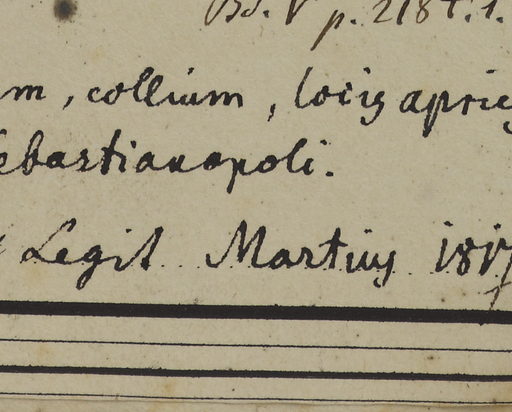 Bd. V p. 218 t. 1.
m, collium, locis apric
ebastianopoli.
Legit Martius 1817